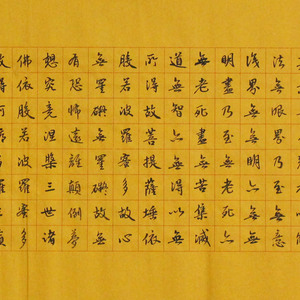 法無眼界乃至無意
識界無無明亦無無
明盡乃至無老死亦
無老死盡無苦集滅
道無智亦無得以無
所得故菩提薩埵依
般若波羅蜜多故心
無罣礙無罣礙故無
有恐怖遠離顛倒夢
想究竟涅槃三世諸
佛依般若波羅蜜多
故得阿耨多羅三藐